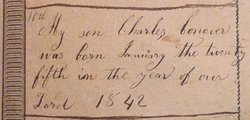 10th
My son Charles Conover
was born January the twenty
fifth in the year of our
Lord 1842